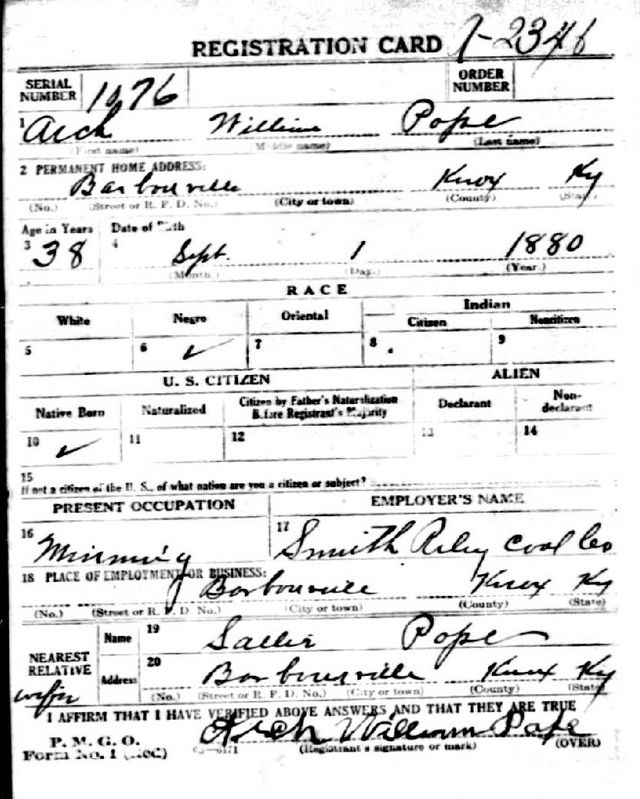 REGISTRATION CARD
SERIAL NUMBER 1076 ORDER NUMBER
1 Arch William Pope
(First name) (Middle name) (Last name)
2 PERMANENT HOME ADDRESS:
Barbourville Knox Ky
(No.) (Street or R. F. D. No.) (City or town) (County) (State)
Age in Years Date of Birth
3 38 4 Sept. 1 1880
(Month.) (Day.) (Year.)
RACE
White Negro Oriental Indian
Citizen Noncitizen
5 6 ✓ 7 8 9
U. S. CITIZEN ALIEN
Native Born Naturalized Citizen by Father's Naturalization Before Registrant's Majority Declarant Non-declarant
10 ✓ 11 12 13 14
15
If not a citizen of the U. S., of what nation are you a citizen or subject?
PRESENT OCCUPATION EMPLOYER'S NAME
16 Minning 17 Smith Riley Coal Co
18 PLACE OF EMPLOYMENT OR BUSINESS:
Barbourville Knox Ky
(No.) (Street or R. F. D. No.) (City or town) (County) (State)
NEAREST RELATIVE Name 19 Sallie Pope
Address 20 Barbourville Knox Ky
wife (No.) (Street or R. F. D. No.) (City or town) (County) (State)
I AFFIRM THAT I HAVE VERIFIED ABOVE ANSWERS AND THAT THEY ARE TRUE
P. M. G. O.
Form No. 1 (Red) Arch William Pope
(Registrant's signature or mark) (OVER)